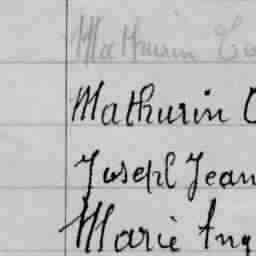 Mathurin
Mathurin
Joseph Jean
Marie Ang